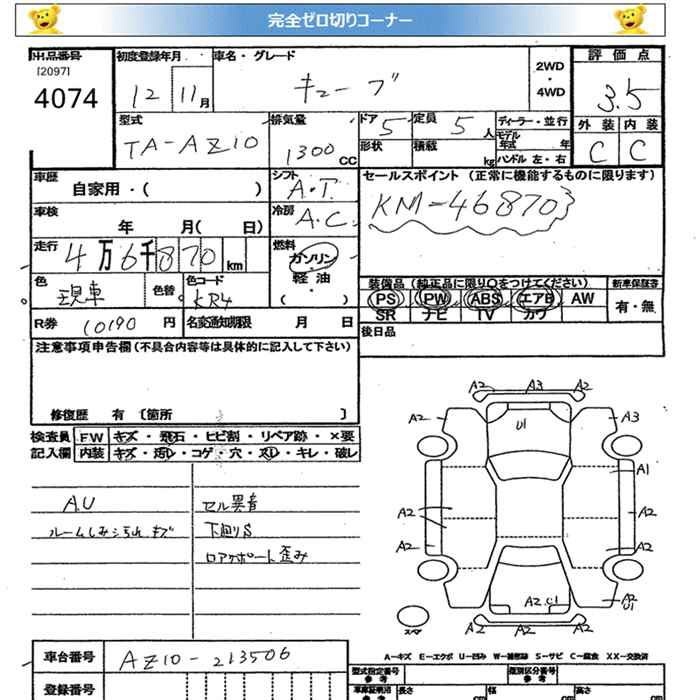 完全ゼロ切りコーナー
出品番号 初度登録年月 車名・グレード 2WD・4WD 評価点
[2097]
4074 12 11月 キューブ 3.5
型式 TA-AZ10 排気量 1300 CC ドア 5 定員 5 人 ディーラー・並行 外装 内装
形状 積載 kg モデル年式 年式 ハンドル 左・右 C C
車歴 自家用・( ) シフト A・T セールスポイント (正常に機能するものに限ります)
車検 年 月( 日) 冷房 A.C KM-46870
走行 4万6千870 km 燃料 ガソリン・軽油・( )
色 現車 色替 色コード KR4 装備品 (純正品に限り○をつけてください) 新車保証書
PS PW ABS エアB AW 有・無
SR ナビ TV カワ
R券 10190 円 名変通知期限 月 日 後日品
注意事項申告欄 (不具合内容等は具体的に記入して下さい)
修復歴 有 [箇所 ]
検査員 FW キズ・飛石・ヒビ割・リペア跡・×要
記入欄 内装 キズ・汚レ・コゲ・穴・スレ・キレ・破レ
A.U セル異音
ルームしみ 下廻りS
ロアサポート歪み
A2 A3 A2
A2 U1 A3
A1
A2 A2
A2 A2
A2 C1 A2 U1
A2 A2 A2
スペア
A-キズ E-エクボ U-凹み W-補修跡 S-サビ C-腐食 XX-交換済
車台番号 AZ10-213506 型式指定番号 参考 類別区分番号 参考
登録番号 車庫証明用 参考 長さ cm 幅 cm 高さ cm